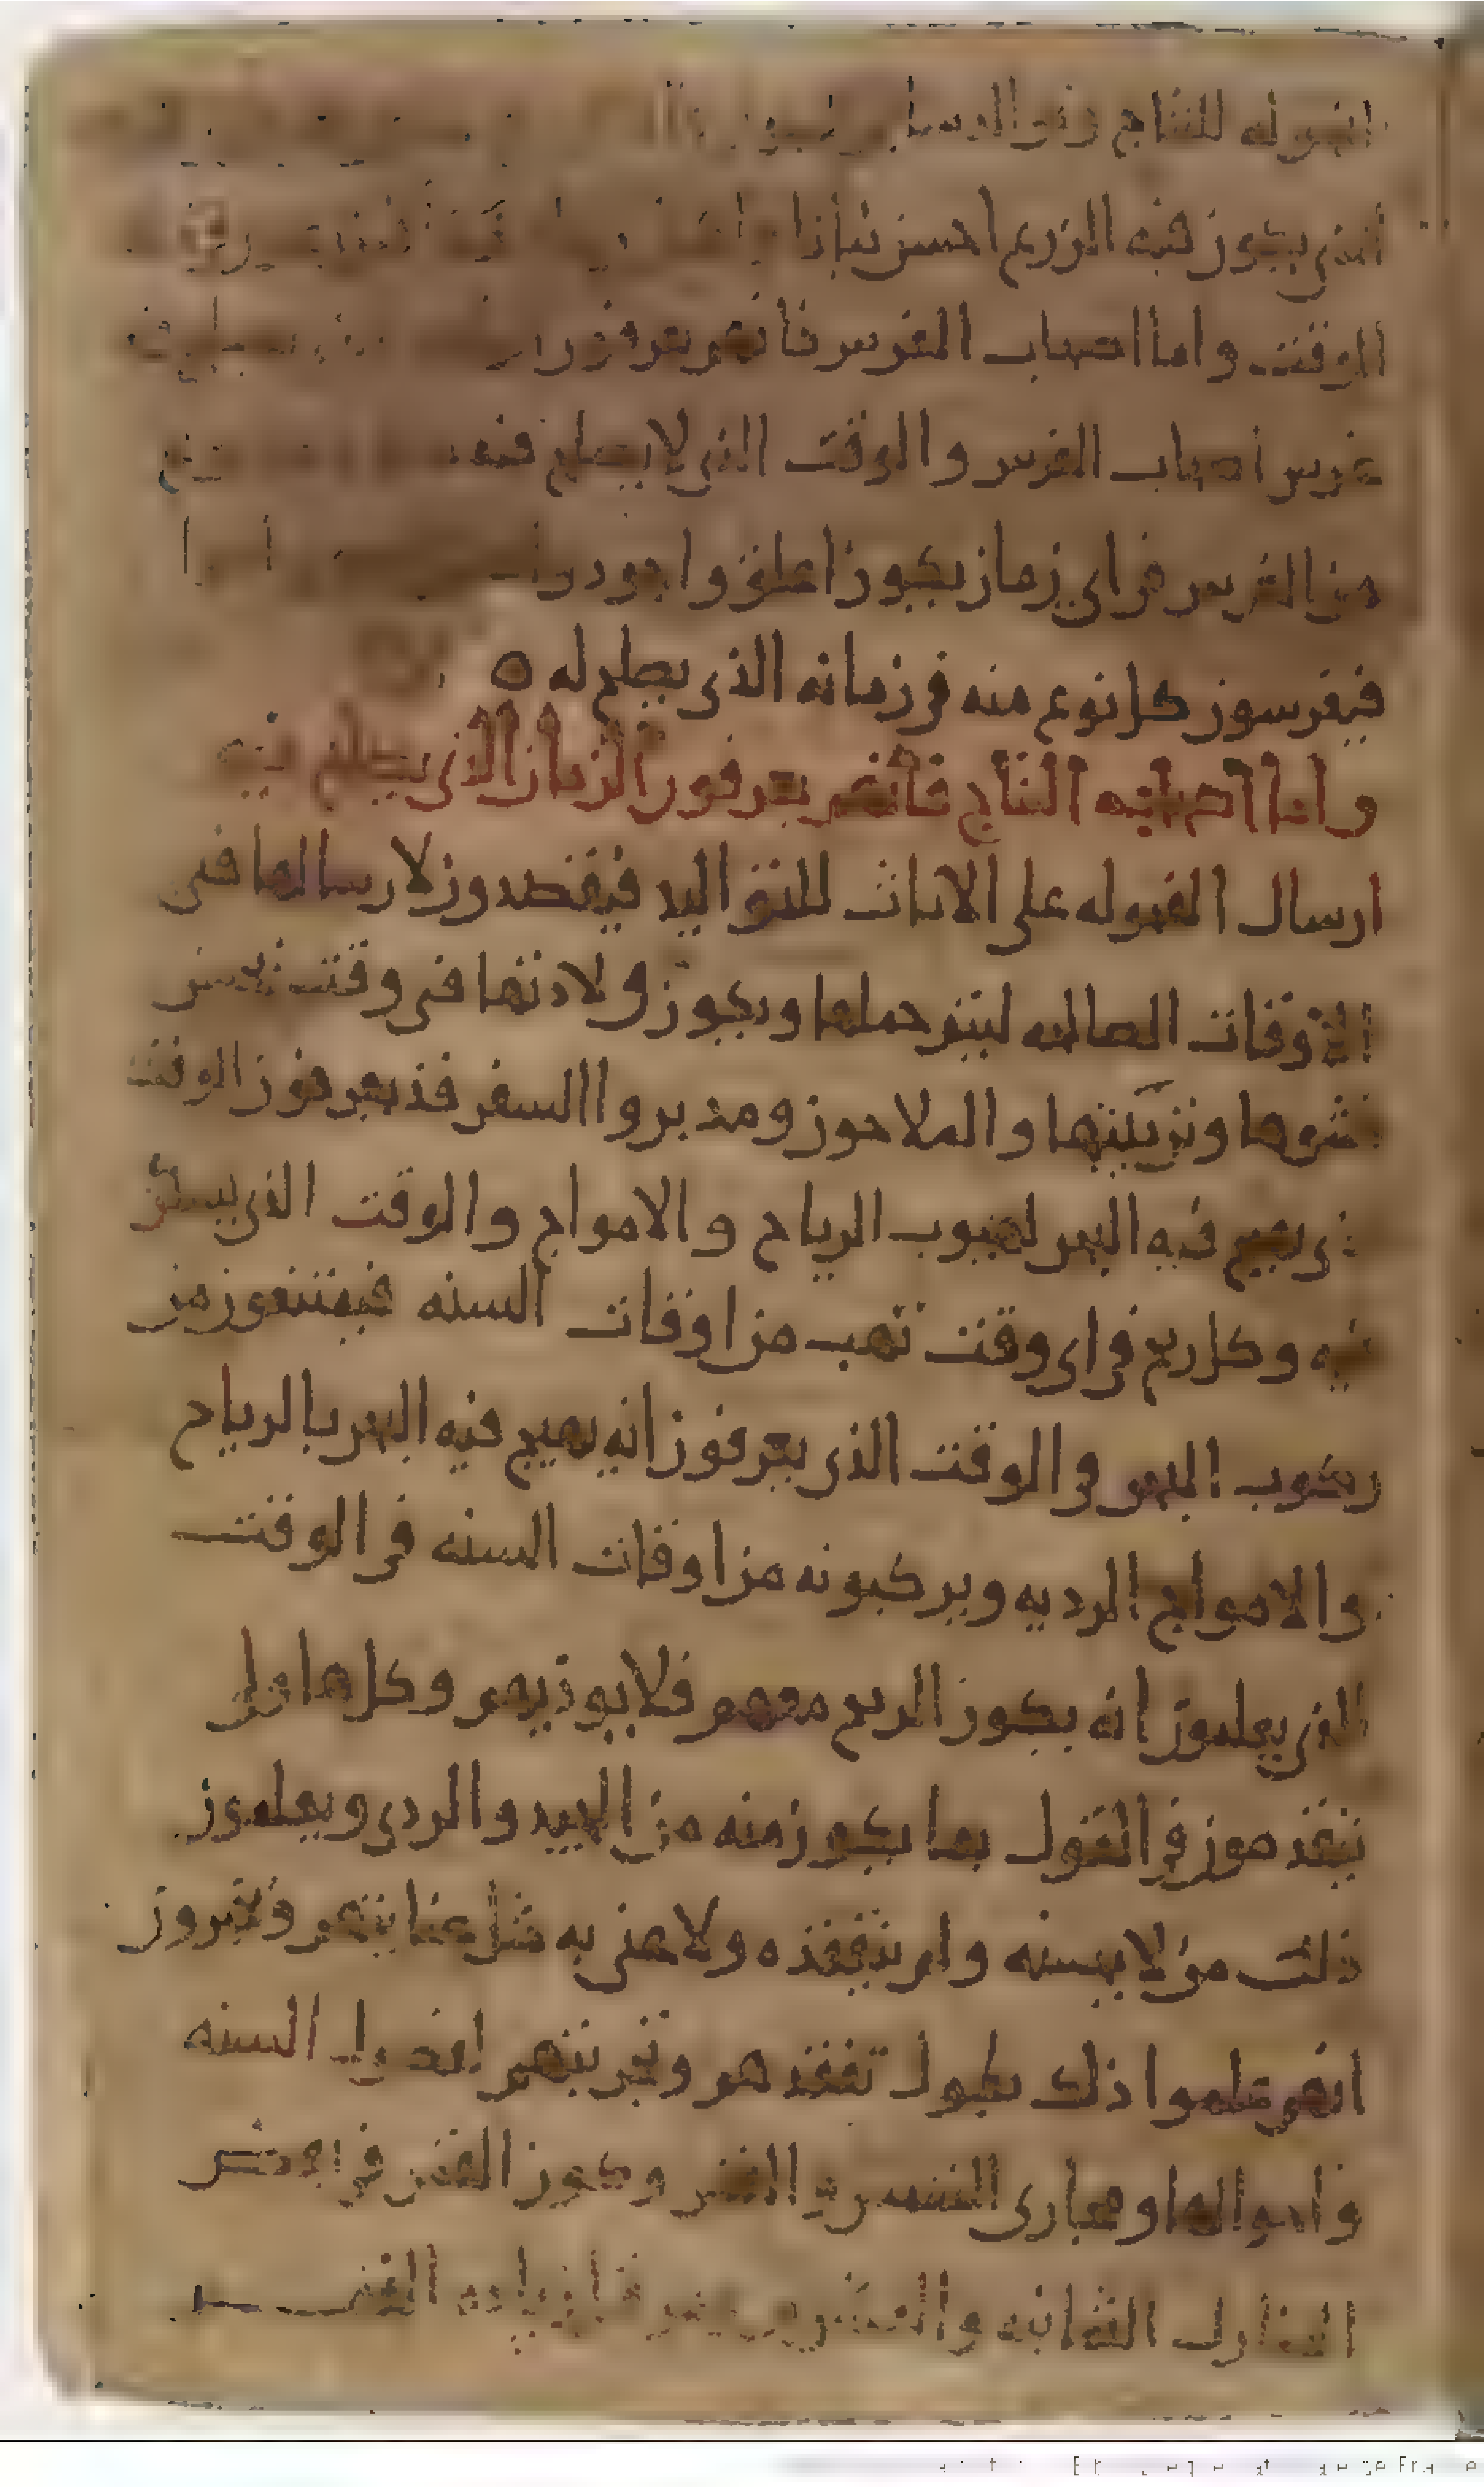 الفحوله للنتاج
الذى يكون فيه الزرع احسن نباتا
الوقت واما اصحاب الغرس فانهم يعرفون
غرس اصحاب الغرس والوقت الذى لا يصلح فيه
من الغرس فى اى زمان يكون اعلق واجود
فيغرسون كل نوع منه فى زمانه الذى يصلح له ه
واما اصحاب النتاج فانهم يعرفون الزمان الذى يصلح فيه
ارسال الفحوله على الاناث للتواليد فيقصدون لارسالها فى
الاوقات الصالحه ليتم حملها ويكون ولادتها فى وقت يحسن
نشوها وتربيتها والملاحون ومدبروا السفر قد يعرفون الوقت
يهيج فيه البحر لهبوب الرياح والامواج والوقت الذى يسكن
فيه وكل ريح فى اى وقت تهب من اوقات السنه فيمتنعون من
ركوب البحر فى الوقت الذى يعرفون انه يهيج فيه البحر بالرياح
والامواج الرديه ويركبونه من اوقات السنه فى الوقت
الذى يعلمون انه يكون الريح معهم فلا يوذيهم وكل هاولى
يتقدمون فى القول بما يكون منه من الجيد والردى ويعلمون
ذلك من لا يحسنه ولم يتفقده ولا عنى به مثل عنايتهم ويخبرون
انهم علموا ذلك بطول تفقدهم وتجربتهم لفصول السنه
واحوالها ومجارى الشمس والقمر وكون القمر فى بعض
المنازل الثمانيه والعشرين